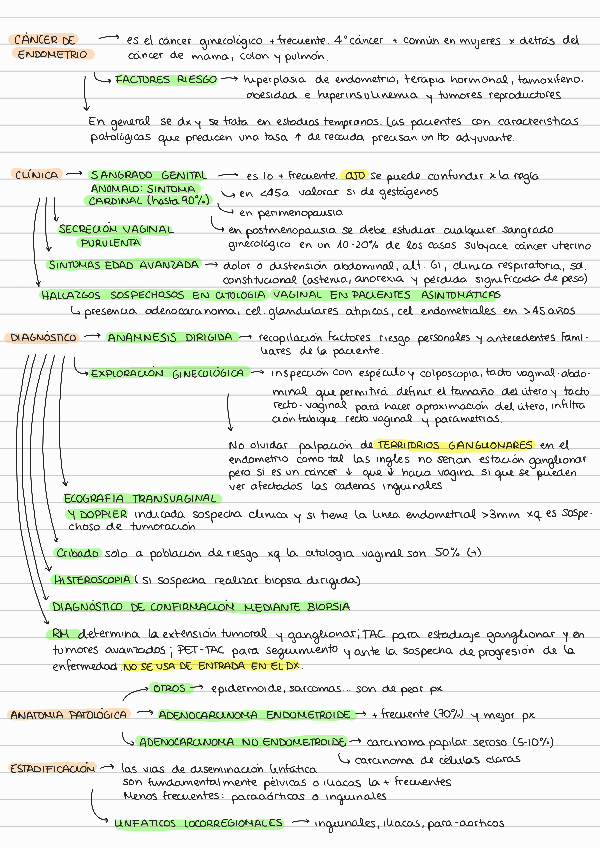 CÁNCER DE ENDOMETRIO → es el cáncer ginecológico + frecuente. 4º cáncer + común en mujeres x detrás del
cáncer de mama, colon y pulmón.
FACTORES RIESGO → hiperplasia de endometrio, terapia hormonal, tamoxifeno.
obesidad e hiperinsulinemia y tumores reproductores
En general se dx y se trata en estadios tempranos. Las pacientes con características
patológicas que predicen una tasa ↑ de recaída precisan un tto adyuvante.
CLÍNICA → SANGRADO GENITAL → es lo + frecuente. OJO se puede confundir x la regla
ANÓMALO: SÍNTOMA
CARDINAL (hasta 90%)
en <45a valorar si dé gestágenos
en perimenopausia
en postmenopausia se debe estudiar cualquier sangrado
ginecológico en un 10-20% de los casos subyace cáncer uterino
SECRECIÓN VAGINAL
PURULENTA
SÍNTOMAS EDAD AVANZADA → dolor o distensión abdominal, alt. GI, clínica respiratoria, sd.
constitucional (astenia, anorexia y pérdida significada de peso)
HALLAZGOS SOSPECHOSOS EN CITOLOGIA VAGINAL EN PACIENTES ASINTOMÁTICAS
presencia adenocarcinoma, cel. glandulares atípicas, cel endometriales en >45 años
DIAGNÓSTICO → ANAMNESIS DIRIGIDA → recopilación factores riesgo personales y antecedentes fami-
liares de la paciente.
EXPLORACIÓN GINECOLÓGICA → inspección con espéculo y colposcopia, tacto vaginal-abdo-
minal que permitirá definir el tamaño del útero y tacto
recto-vaginal para hacer aproximación del útero, infiltra
ción tabique recto vaginal y parametrios.
No olvidar palpación de TERRITORIOS GANGLIONARES en el
endometrio como tal las ingles no serían estación ganglionar
pero si es un cáncer ↓ que ↓ hacia vagina si que se pueden
ver afectados las cadenas inguinales
ECOGRAFÍA TRANSVAGINAL
Y DOPPLER indicada sospecha clínica y si tiene la línea endometrial >3mm xq es sospe-
choso de tumoración
Cribado solo a población de riesgo xq la citología vaginal son 50% (-)
HISTEROSCOPIA (si sospecha realizar biopsia dirigida)
DIAGNÓSTICO DE CONFIRMACIÓN MEDIANTE BIOPSIA
RM determina la extensión tumoral y ganglionar; TAC para estadiaje ganglionar y en
tumores avanzados; PET-TAC para seguimiento y ante la sospecha de progresión de la
enfermedad. NO SE USA DE ENTRADA EN EL DX.
OTROS → epidermoide, sarcomas... son de peor px
ANATOMÍA PATOLÓGICA → ADENOCARCINOMA ENDOMETROIDE → + frecuente (70%) y mejor px
ADENOCARCINOMA NO ENDOMETROIDE → carcinoma papilar seroso (5-10%)
carcinoma de células claras
ESTADIFICACIÓN → las vías de diseminación linfática
son fundamentalmente pélvicos o ilíacos la + frecuentes
Menos frecuentes: paraaórticos o inguinales
LINFÁTICOS LOCORREGIONALES → inguinales, iliacos, para-aorticos